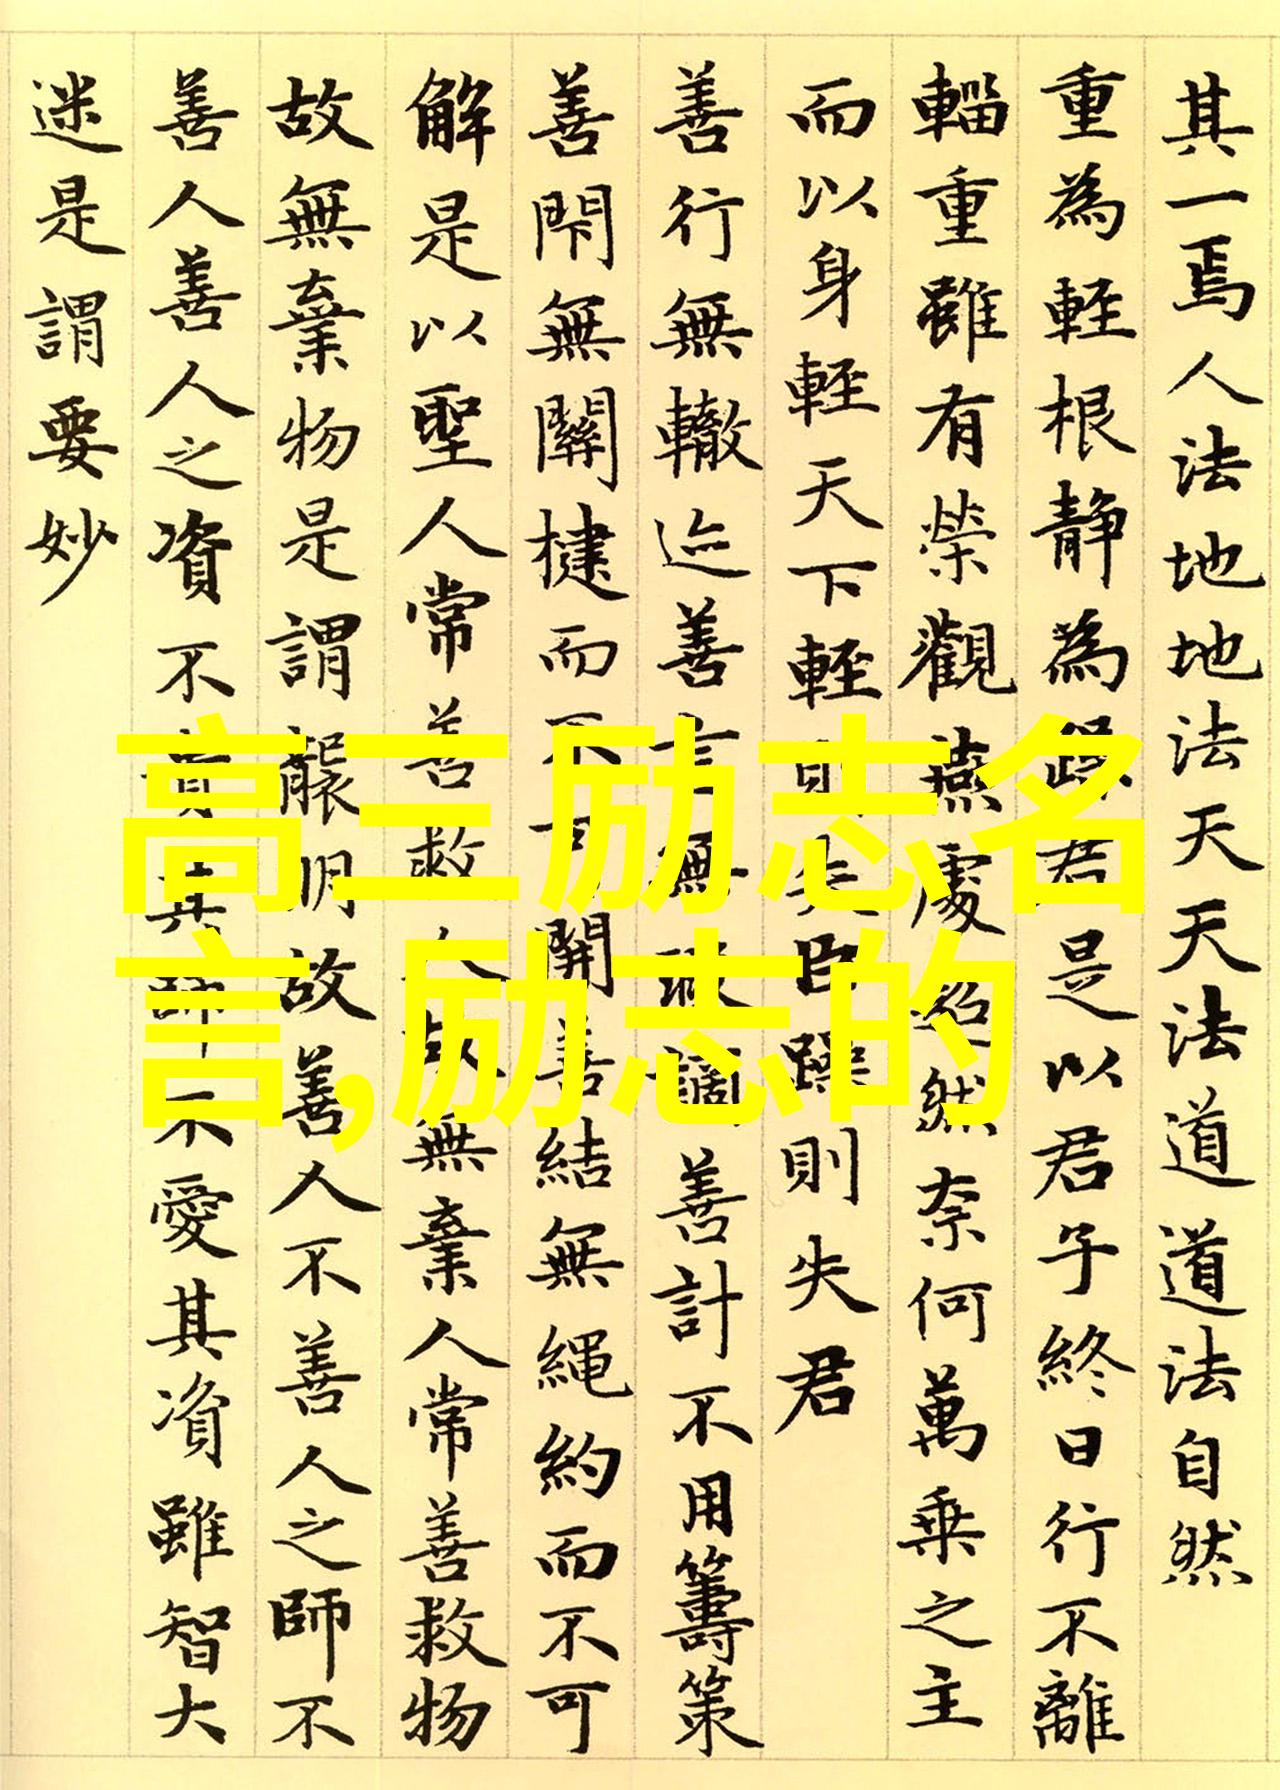 其一焉人法地地法天天法道道法自然
重為輕根靜為躁君是以君子終日行不離
輜重雖有榮觀燕處超然奈何萬乘之主
而以身輕天下輕則失臣躁則失君
善行無轍迹善言無瑕謫善計不用籌策
善閇無關揵而不可開善結無繩約而不可
解是以聖人常善救人故無棄人常善救物
故無棄物是謂襲明故善人不善人之師不
善人善人之資不貴其師不愛其資雖智大
迷是謂要妙
高三励志名
言,励志的